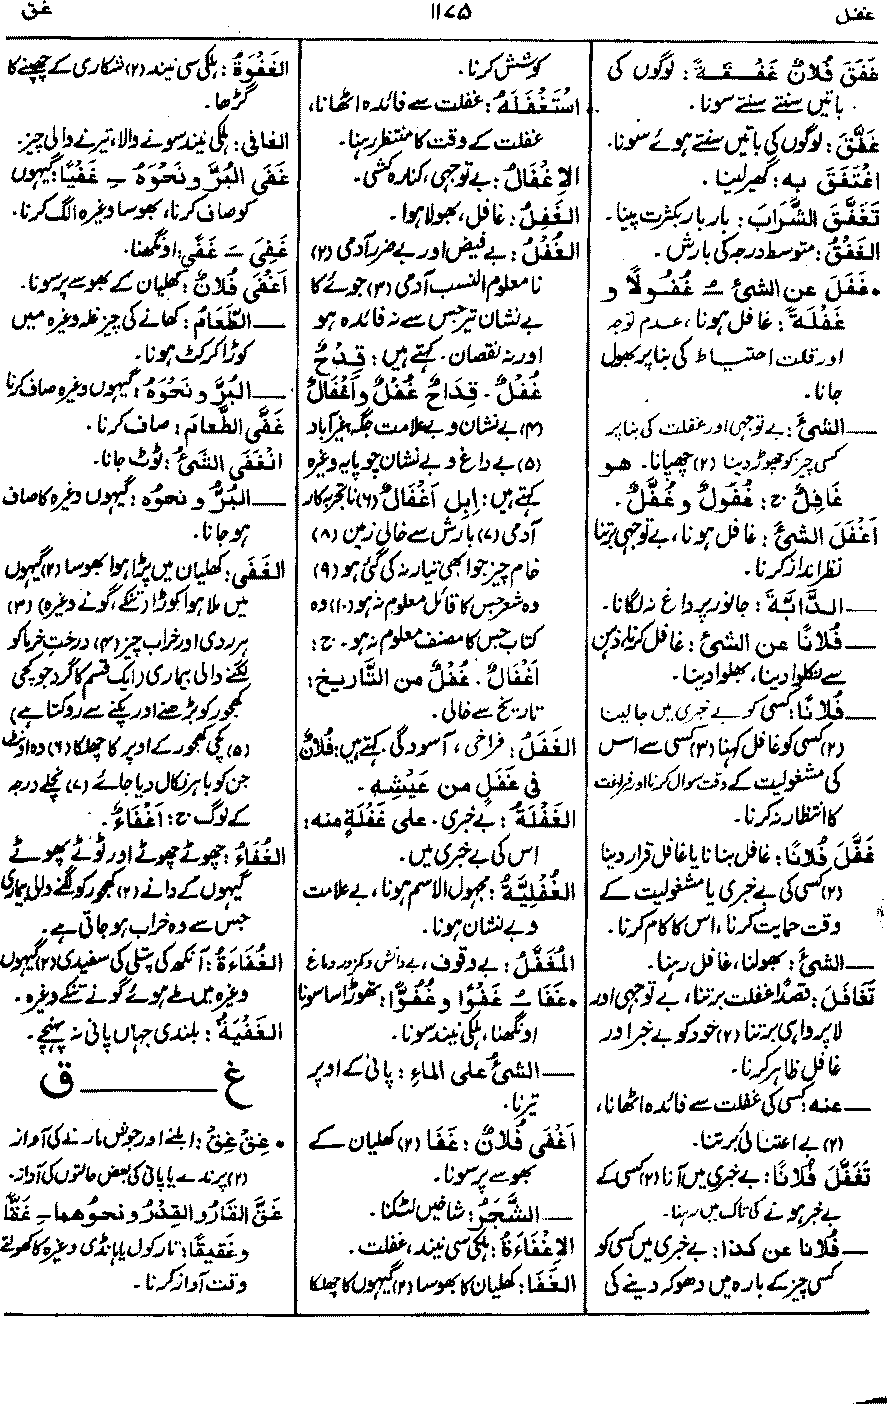 غفل
۱۱۷۵
غق
غَفَقَ فُلَانٌ غَفْقَةً: لوگوں کی
باتیں سنتے سنتے سونا۔
غَفَّقَ: لوگوں کی باتیں سنتے ہوئے سونا۔
اغْتَفَقَ بِهِ: گھیر لینا۔
تَغَفَّقَ الشَّرَابَ: بار بار بکثرت پینا۔
الغَفْقُ: متوسط درجہ کی بارش۔
• غَفَلَ عن الشئ ـُ غُفُولًا و
غَفْلَةً: غافل ہونا، عدم توجہ
اور قلت احتیاط کی بنا پر بھول
جانا۔
ــــ الشئَ: بے توجہی اور غفلت کی بنا پر
کسی چیز کو چھوڑ دینا (۲) چھپانا۔ ھو
غَافِلٌ ج: غُفُولٌ و غُفَّلٌ۔
أغْفَلَ الشئَ: غافل ہونا، بے توجہی برتنا
نظر انداز کرنا۔
ــــ الدَّابَّةَ: جانور پر داغ نہ لگانا۔
ــــ فُلَانًا عن الشئ: غافل کرنا، ذہن
سے نکلوا دینا، بھلوا دینا۔
ــــ فُلَانًا: کسی کو بے خبری میں جا لینا
(۲) کسی کو غافل کہنا (۳) کسی سے اس
کی مشغولیت کے وقت سوال کرنا اور فراغت
کا انتظار نہ کرنا۔
غَفَّلَ فُلَانًا: غافل بنانا یا غافل قرار دینا
(۲) کسی کی بے خبری یا مشغولیت کے
وقت حمایت کرنا، اس کا کام کرنا۔
ــــ الشئَ: بھولنا، غافل رہنا۔
تَغَافَلَ: قصدًا غفلت برتنا، بے توجہی اور
لاپرواہی برتنا (۲) خود کو بے خبر اور
غافل ظاہر کرنا۔
ــــ عنه: کسی کی غفلت سے فائدہ اٹھانا،
(۲) بے اعتنائی برتنا۔
تَغَفَّلَ فُلَانًا: بے خبری میں آنا (۲) کسی کے
بے خبر ہونے کی تاک میں رہنا۔
ــــ فُلَانا عن كذا: بے خبری میں کسی کو
کسی چیز کے بارہ میں دھوکہ دینے کی
کوشش کرنا۔
• اسْتَغْفَلَهُ: غفلت سے فائدہ اٹھانا،
غفلت کے وقت کا منتظر رہنا۔
الإغْفَالُ: بے توجہی، کنارہ کشی۔
الغَفِلُ: غافل، بھولا ہوا۔
الغُفْلُ: بے فیض اور بے ضرر آدمی (۲)
نامعلوم النسب آدمی (۳) جوئے کا
بے نشان تیر جس سے نہ فائدہ ہو
اور نہ نقصان۔ کہتے ہیں: قِدْحٌ
غُفْلٌ۔ قِدَاحٌ غُفْلٌ و أغْفَالٌ
(۴) بے نشان و بے علامت جگہ غیر آباد
(۵) بے داغ و بے نشان چوپایہ وغیرہ
کہتے ہیں: إبِل أغْفَالٌ (۶) ناتجربہ کار
آدمی (۷) بارش سے خالی زمین (۸)
خام چیز جو ابھی تیار نہ کی گئی ہو (۹)
وہ شعر جس کا قائل معلوم نہ ہو (۱۰) وہ
کتاب جس کا مصنف معلوم نہ ہو۔ ج:
أغْفَالٌ۔ غُفْلٌ من التَّارِيخ:
تاریخ سے خالی۔
الغَفَلُ: فراخی، آسودگی کہتے ہیں: فُلَانٌ
فِي غَفَلٍ من عَيْشِهِ۔
الغَفْلَةُ: بے خبری۔ على غَفْلَةٍ منه:
اس کی بے خبری میں۔
الغُفْلِيَّةُ: مجہول الاسم ہونا، بے علامت
و بے نشان ہونا۔
المُغَفَّلُ: بے وقوف، بے دانش و کمزور دماغ
• غَفَا ـُ غَفْوًا و غُفُوًّا: تھوڑا سا سونا
اونگھنا، ہلکی نیند سونا۔
ــــ الشئُ على الماءِ: پانی کے اوپر
تیرنا۔
أغْفَى فُلَانٌ: غَفَا (۲) کھلیان کے
بھوسے پر سونا۔
ــــ الشَّجَرُ: شاخیں لٹکنا۔
الإغْفَاءَةُ: ہلکی سی نیند، غفلت۔
الغَفَا: کھلیان کا بھوسا (۲) گیہوں کا چھلکا
الغَفْوَةُ: ہلکی سی نیند (۲) شکاری کے چھپنے کا
گڑھا۔
الغافي: ہلکی نیند سونے والا، تیرنے والی چیز۔
غَفَى البُرَّ و نَحْوَهُ ـِ غَفْيًا: گیہوں
کو صاف کرنا، بھوسا وغیرہ الگ کرنا۔
غَفِيَ ـَ غَفًى: اونگھنا۔
أغْفَى فُلَانٌ: کھلیان کے بھوسے پر سونا۔
ــــ الطَّعَامُ: کھانے کی چیز غلہ وغیرہ میں
کوڑا کرکٹ ہونا۔
ــــ البُرَّ و نَحْوَهُ: گیہوں وغیرہ صاف کرنا
غَفَّى الطَّعَامَ: صاف کرنا۔
انْغَفَى الشَّئُ: ٹوٹ جانا۔
ــــ البُرُّ و نحوُه: گیہوں وغیرہ کا صاف
ہو جانا۔
الغَفَى: کھلیان میں پڑا ہوا بھوسا (۲) گیہوں
میں ملا ہوا کوڑا (تنکے، گونے وغیرہ) (۳)
ہر ردی اور خراب چیز (۴) درختِ خرما کو
لگنے والی بیماری (ایک قسم کا گرد جو کچی
کھجور کو بڑھنے اور پکنے سے روکتا ہے)
(۵) کچی کھجور کے اوپر کا چھلکا (۶) وہ اونٹ
جن کو باہر نکال دیا جائے (۷) نچلے درجہ
کے لوگ ج: أغْفَاءٌ۔
الغُفَاءُ: چھوٹے چھوٹے اور ٹوٹے پھوٹے
گیہوں کے دانے (۲) کھجور کو لگنے والی بیماری
جس سے وہ خراب ہو جاتی ہے۔
الغُفَاءَةُ: آنکھ کی پتلی کی سفیدی (۲) گیہوں
وغیرہ میں ملے ہوئے گونے تنکے وغیرہ۔
الغَفْيَةُ: بلندی جہاں پانی نہ پہنچے۔
غ ـــــــ ق
• غِقْ غِقْ: ابلنے اور جوش مارنے کی آواز
(۲) پرندے یا پانی کی بعض حالتوں کی آواز۔
غَقَّ القَارُ و القِدْرُ و نحوُهما ـِ غَقًّا
و غَقِيقًا: تارکول یا ہانڈی وغیرہ کا کھولتے
وقت آواز کرنا۔